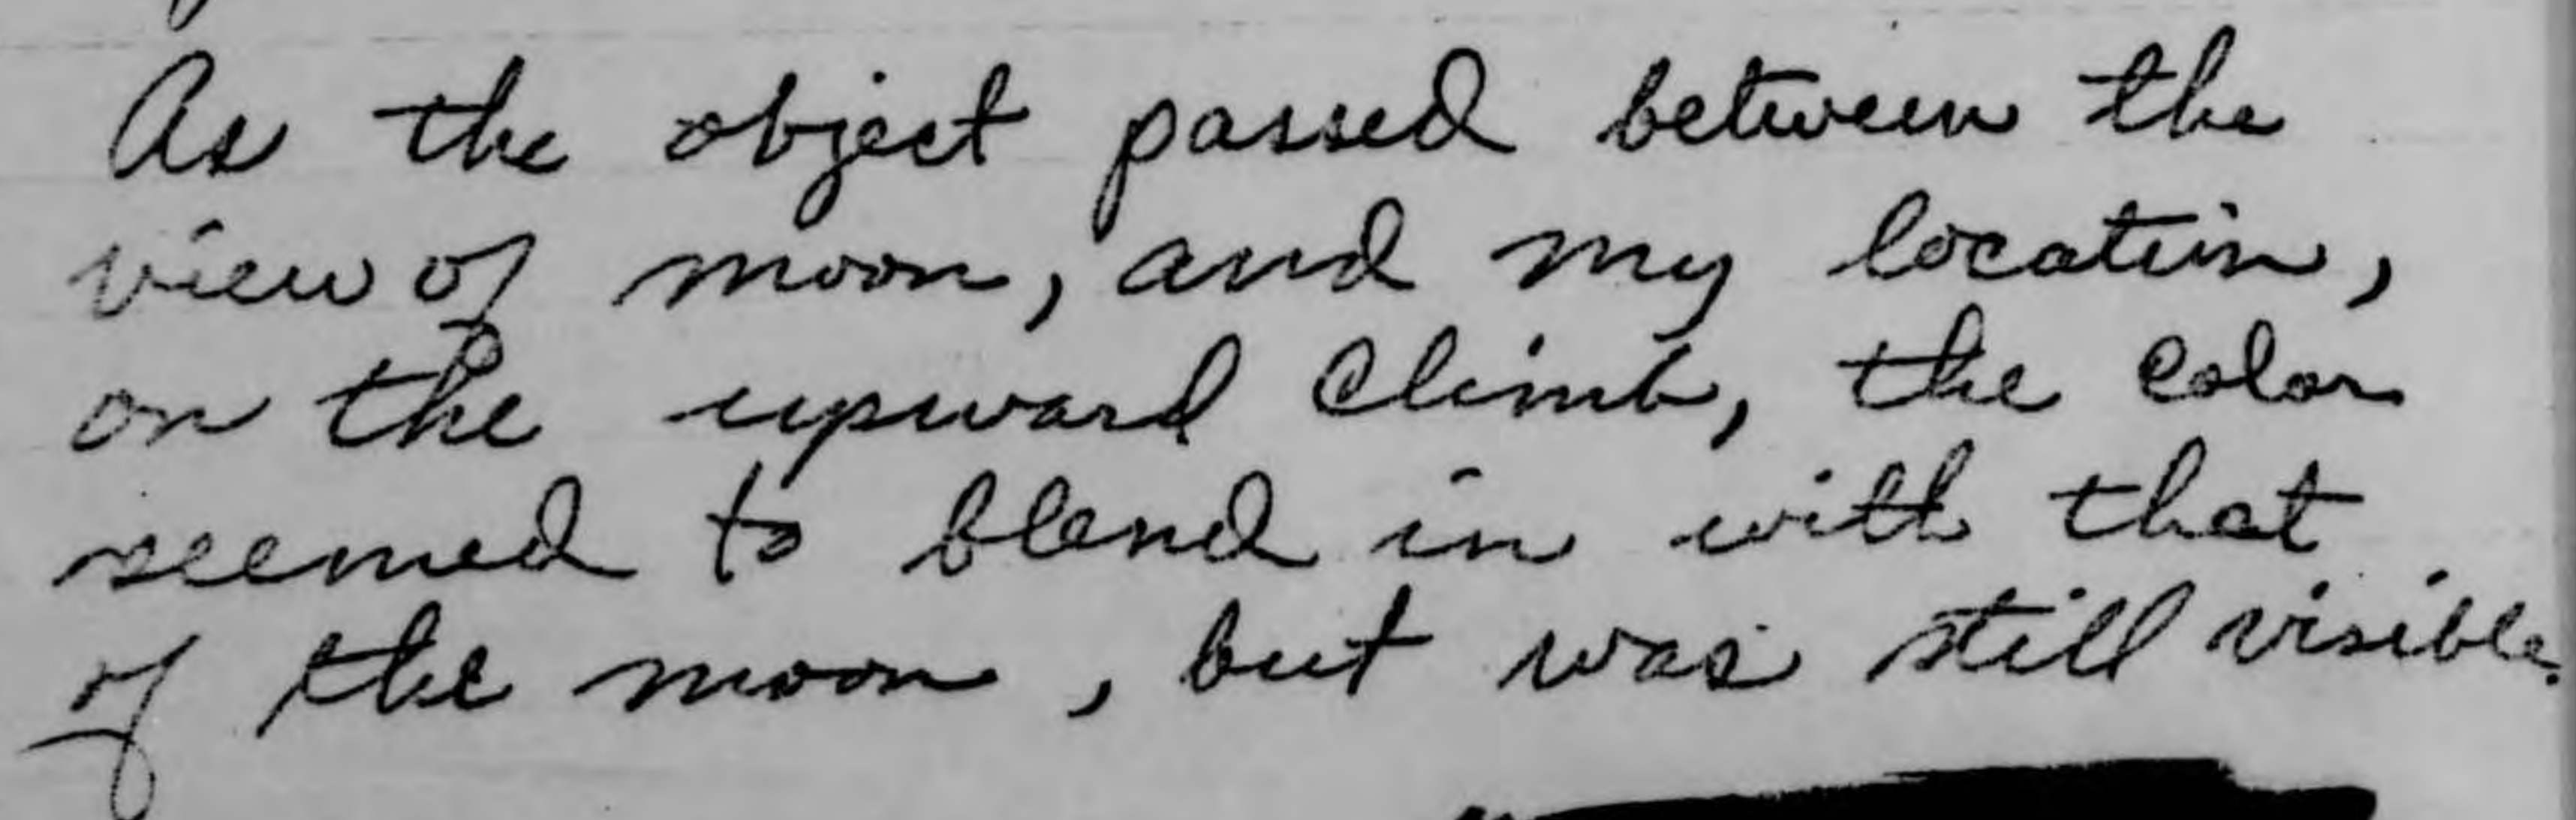 As the object passed between the
view of moon, and my location,
on the upward climb, the color
seemed to blend in with that
of the moon, but was still visible.